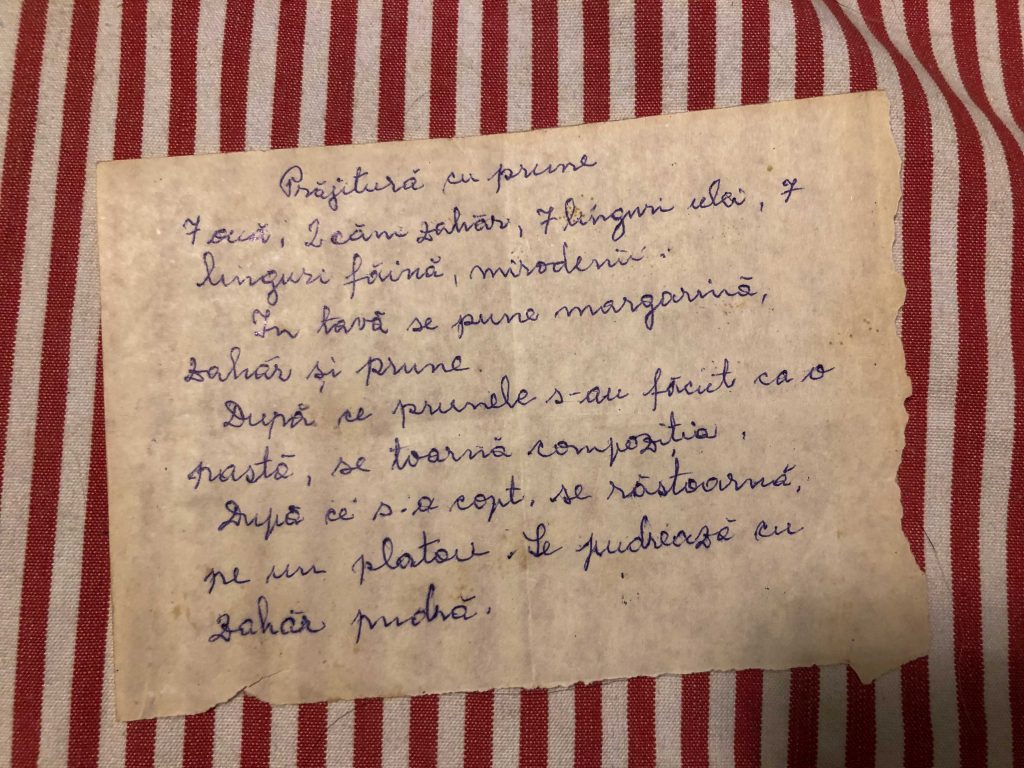 Prăjitură cu prune
7 ouă, 2 căni zahăr, 7 linguri ulei, 7
linguri făină, mirodenii.
In tavă se pune margarină,
zahăr și prune.
După ce prunele s-au făcut ca o
pastă, se toarnă compoziția.
După ce s-a copt, se răstoarnă,
pe un platou. Se pudrează cu
zahăr pudră.